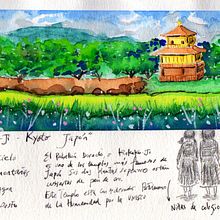 Ji - Kyoto Japón"
El Pabellón Dorado o Kinkaku Ji
es uno de los templos más famosos de
Japón. Sus dos plantas superiores están
cubiertas de pan de oro.
Este Templo está considerado Patrimonio
de la Humanidad por la UNESCO
Niñas de colegio